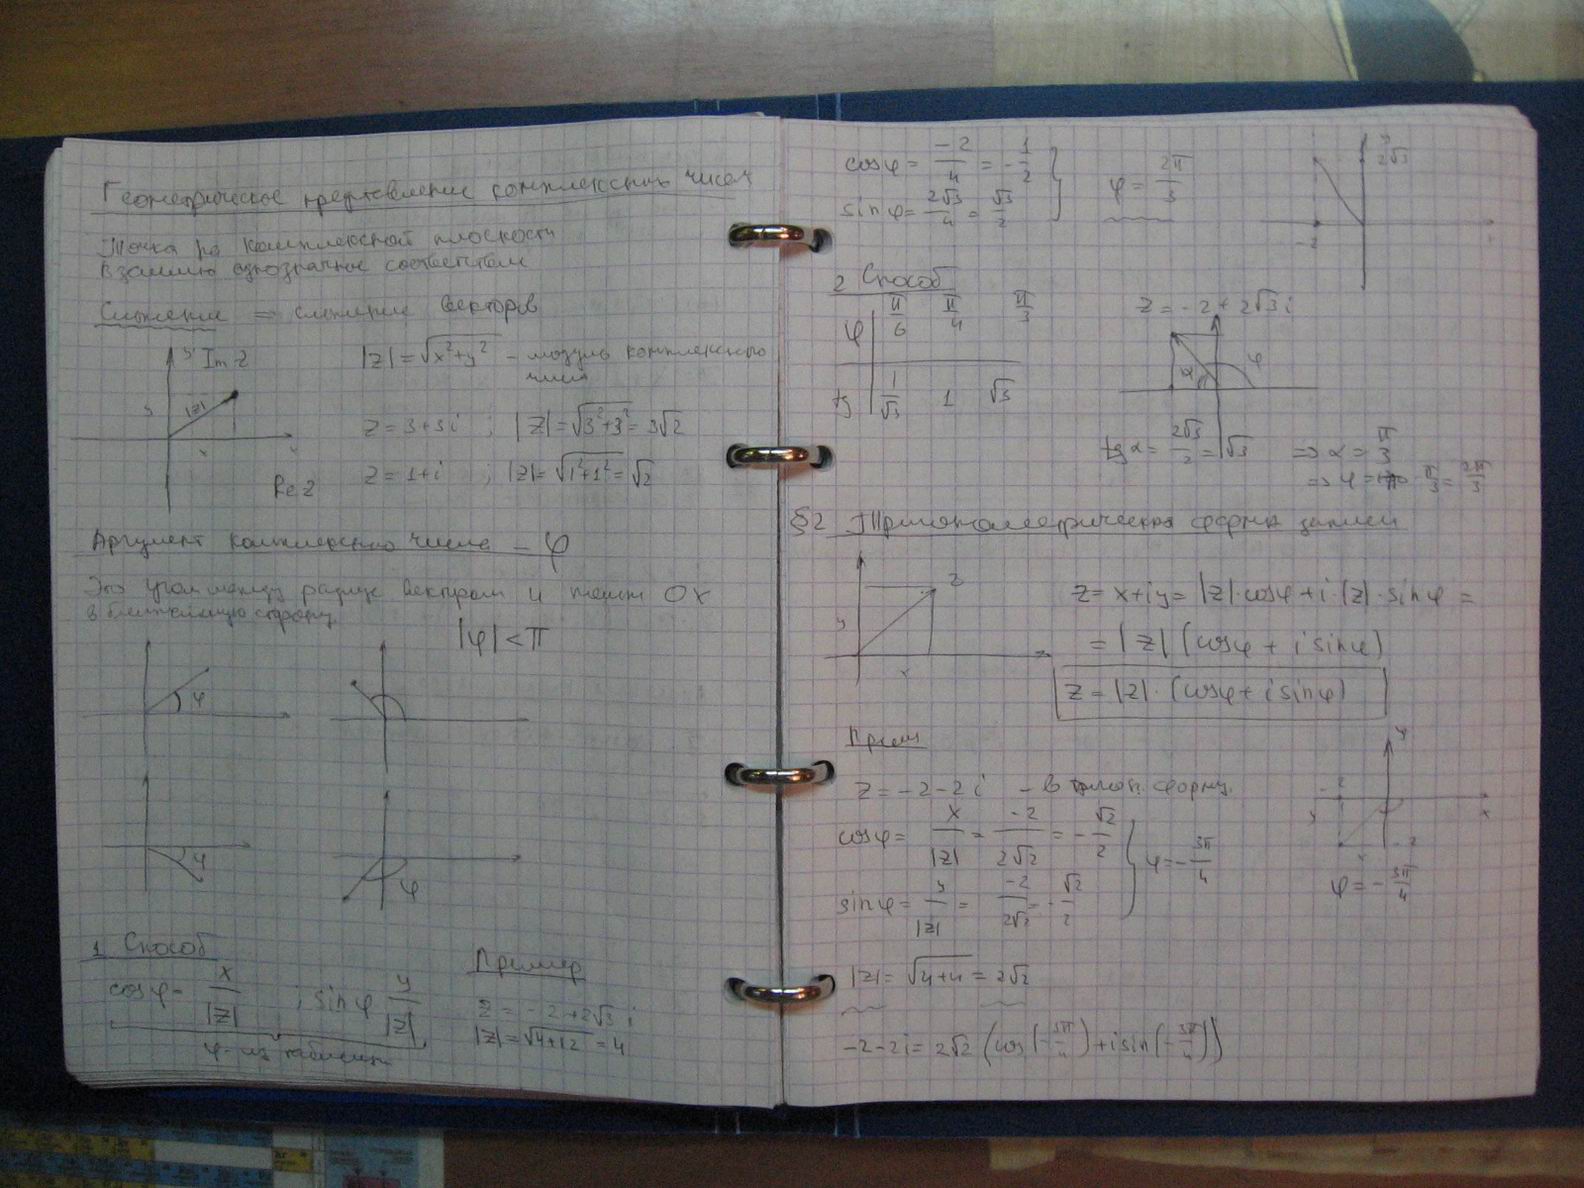 Геометрическое представление комплексных чисел
Точка на комплексной плоскости
взаимно однозначное соответствие
Сложение = сложение векторов
y Im z
|z| = √x²+y² - модуль комплексного
числа
y |z|
z = 3+3i ; |z| = √3²+3² = 3√2
x
z = 1+i ; |z| = √1²+1² = √2
Re z
Аргумент комплексного числа - φ
Это угол между радиус вектором и OX
в ближайшую сторону
|φ| < π
φ
φ
φ
1 Способ
cosφ = x/|z| ; sinφ y/|z|
φ - из таблицы
Пример
z = -2+2√3 i
|z| = √4+12 = 4
cosφ = -2/4 = -1/2
sinφ = 2√3/4 = √3/2
φ = 2π/3
y
2√3
-2
2 Способ
φ π/6 π/4 π/3
tg 1/√3 1 √3
z = -2 + 2√3 i
α φ
tg α = 2√3/2 = √3 => α = π/3
=> φ = π/3 = 2π/3
§2 Тригонометрическая форма записи
z
y
x
z = x+iy = |z|·cosφ + i·|z|·sinφ =
= |z| (cosφ + i sinφ)
z = |z|·(cosφ + i sinφ)
Прим
z = -2-2i - в форму
cosφ = x/|z| = -2/2√2 = -√2/2
sinφ = y/|z| = -2/2√2 = -√2/2
φ = -3π/4
y
-2
x
-2
φ = -3π/4
|z| = √4+4 = 2√2
-2-2i = 2√2 (cos(-3π/4) + i sin(-3π/4))